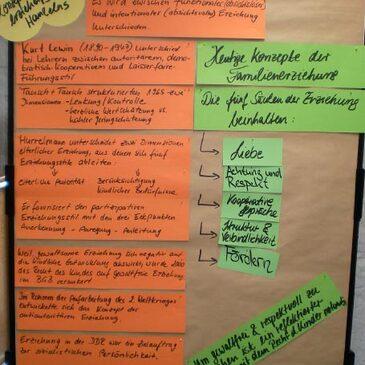 erziehe
Handelns
Es wird zwischen funktionaler (absichtslosen)
und intentionaler (absichtsvoller) Erziehung
Unterschieden.
Kurt Lewin (1890-1947) unterschied
bei Lehrern zwischen autoritärem, demo-
kratisch-kooperativem und Laissez-faire-
Führungsstil
Tausch + Tausch strukturierten 1965 zwei
Dimensionen - Lenkung/Kontrolle
- herzliche Wertschätzung vs.
kühler Geringschätzung
Hurrelmann unterscheidet zwei Dimensionen
elterlicher Erziehung, aus denen sich fünf
Erziehungsstile ableiten:
elterliche Autorität Berücksichtigung
kindlicher Bedürfnisse
Er favorisiert den partizipativen
Erziehungsstil mit den drei Eckpunkten
Anerkennung - Anregung - Anleitung
Weil gewaltfreie Erziehung sich negativ auf
die kindliche Entwicklung auswirkt, wurde 2000
das Recht des Kindes auf gewaltfreie Erziehung
im BGB verankert
Im Rahmen der Aufarbeitung des 2. Weltkrieges
entwickelte sich das Konzept der
antiautoritären Erziehung
Erziehung in der DDR war ein Staatsauftrag
zur sozialistischen Persönlichkeit.
Heutige Konzepte der
Familienerziehung
Die fünf Säulen der Erziehung
beinhalten:
Liebe
Achtung und
Respekt
Kooperative
Gespräche
Struktur &
Verbindlichkeit
Fördern
Um gewaltfrei & respektvoll zu
ist ein reflektierter
mit dem Recht d. Kinder